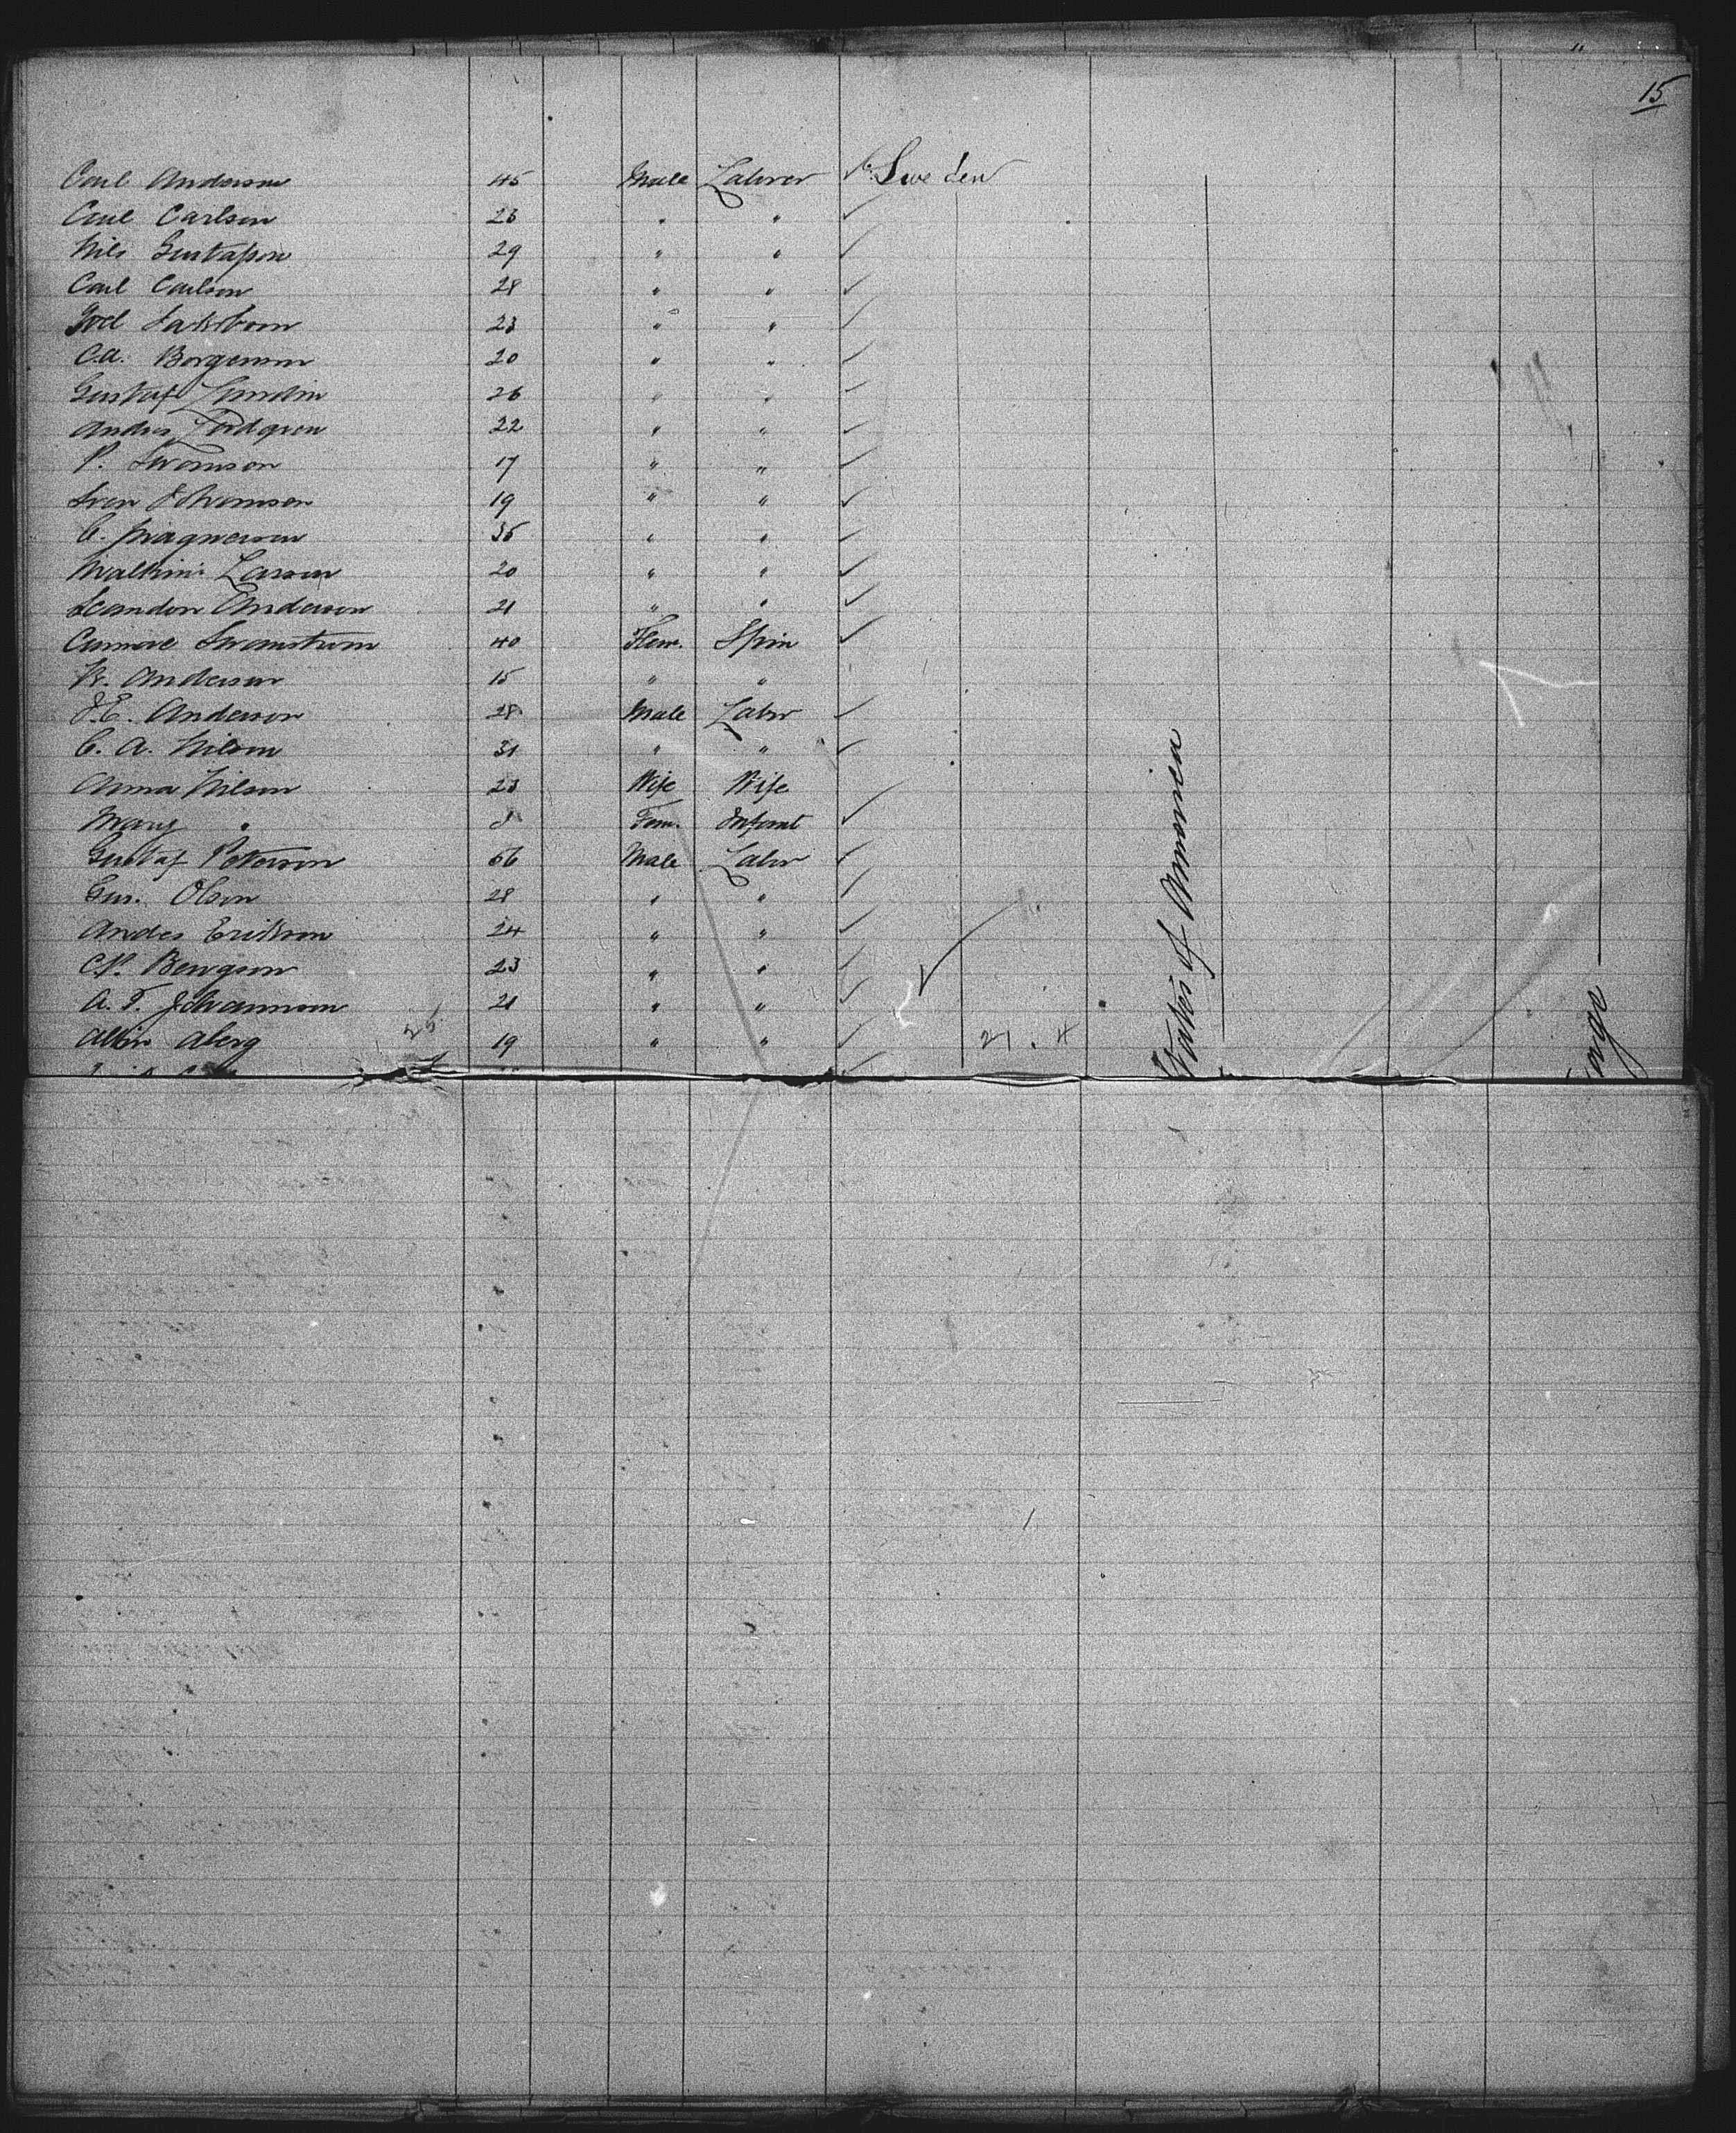 15
Carl Anderson 45 Male Labrer ✓ Sweden
Carl Carlson 26 " " ✓
Nils Gustafson 29 " " ✓
Carl Carlson 28 " " ✓
Joel 23 " " ✓
C.A. Borgerson 20 " " ✓
Gustaf Lundin 26 " " ✓
Andres Lordgren 22 " " ✓
P. Swanson 17 " " ✓
Sven Johanson 19 " " ✓
C. Magnerson 35 " " ✓
Larson 20 " " ✓
Anderson 21 " " ✓
Swanstrom 40 Fem. Spin ✓
Anderson 15 " "
J.E. Anderson 28 Male Labr ✓
C. A. Nilson 31 " " ✓
Anna Nilson 23 Wife Wife
Mary " Fem. Infant ✓
Gustaf Peterson 56 Male Labr ✓
Gus. Olson 28 " " ✓
Andes Erikson 24 " " ✓
C.P. Bengson 23 " " ✓
A. F. Johannson 21 " " ✓
Albin Aberg 25 19 " " ✓ 21. 4
States of America